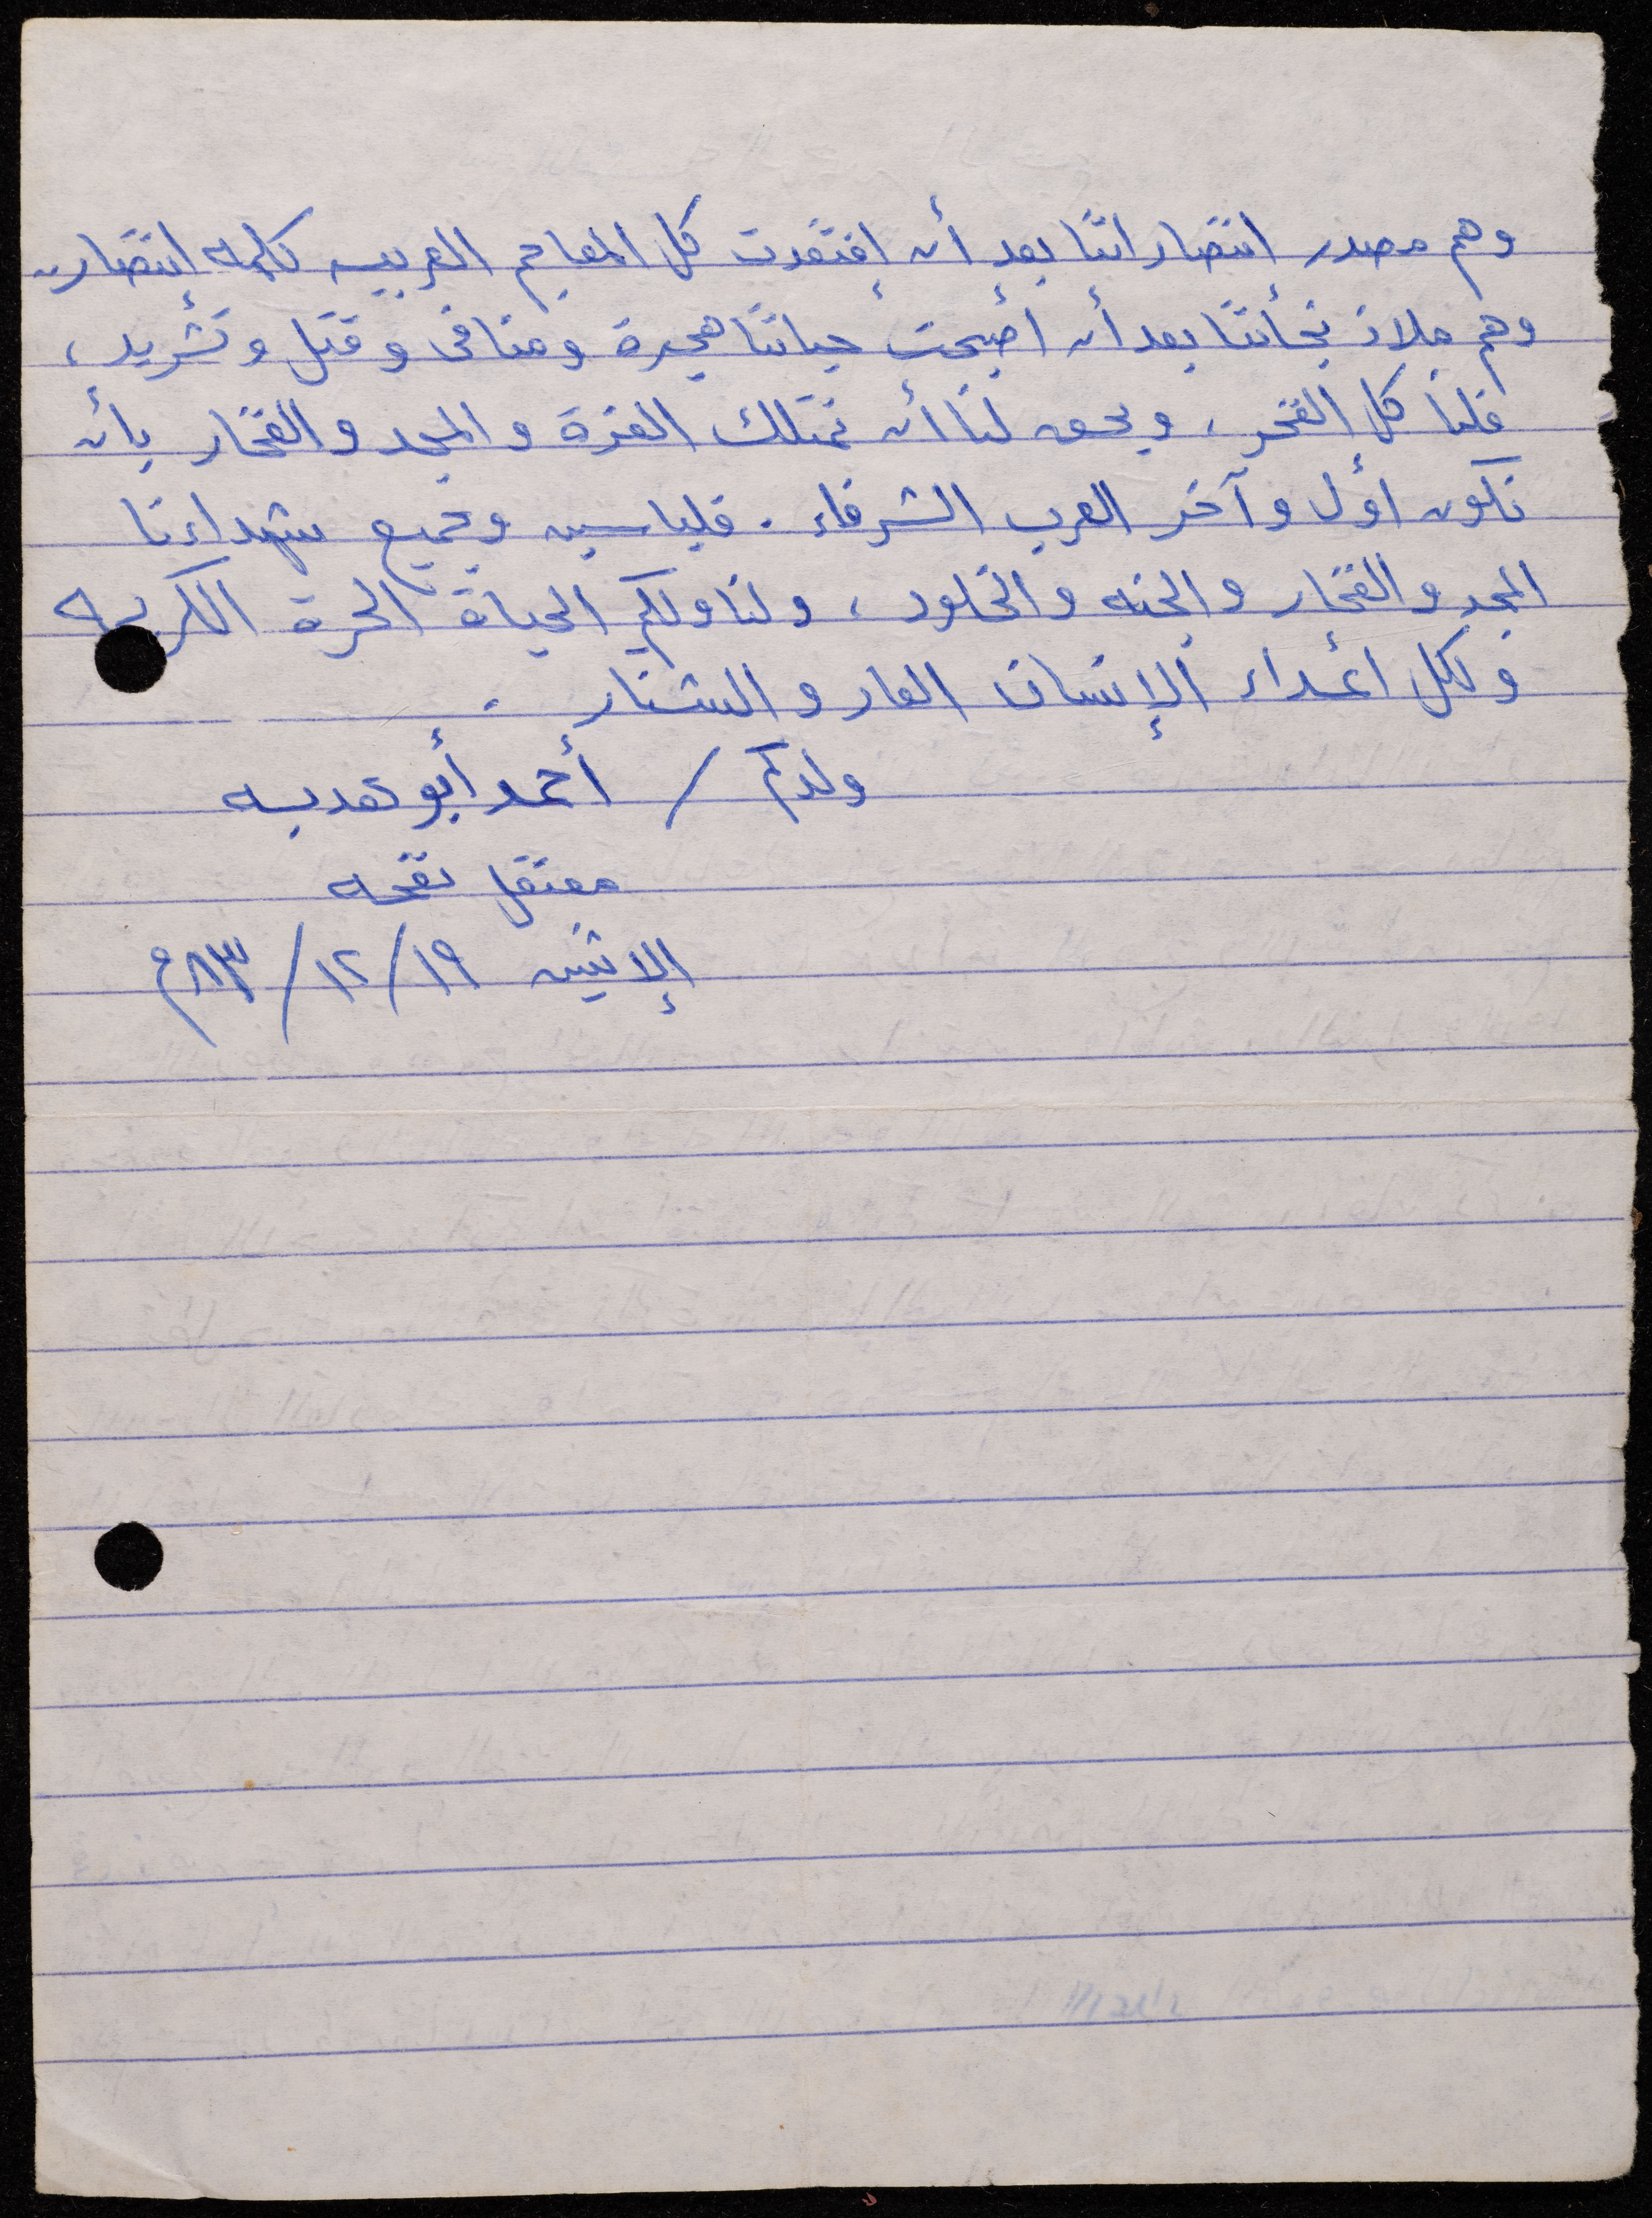 وهم مصدر انتصاراتنا بعد أن إفتقدت كل المعاجم العربيه لكلمه إنتصار،
وهم ملاذ نجأتنا بعد أن أصبحت حياتنا هجرة ومنافى وقتل وتشريد،
فلنا كل الفخر، ويحق لنا أن نمتلك العزة والمجد والفخار بأن
نكون أول وآخر العرب الشرفاء. فلياسين وجميع شهداءنا
المجد والفخار والجنه والخلود، ولنا ولكم الحياة الحرة الكريمه
ولكل أعداء الإنسان العار والشنار.
ولدكم / أحمد أبو هدبه
معتقل نفحه
الإثنين ١٩/١٢/٨٣م